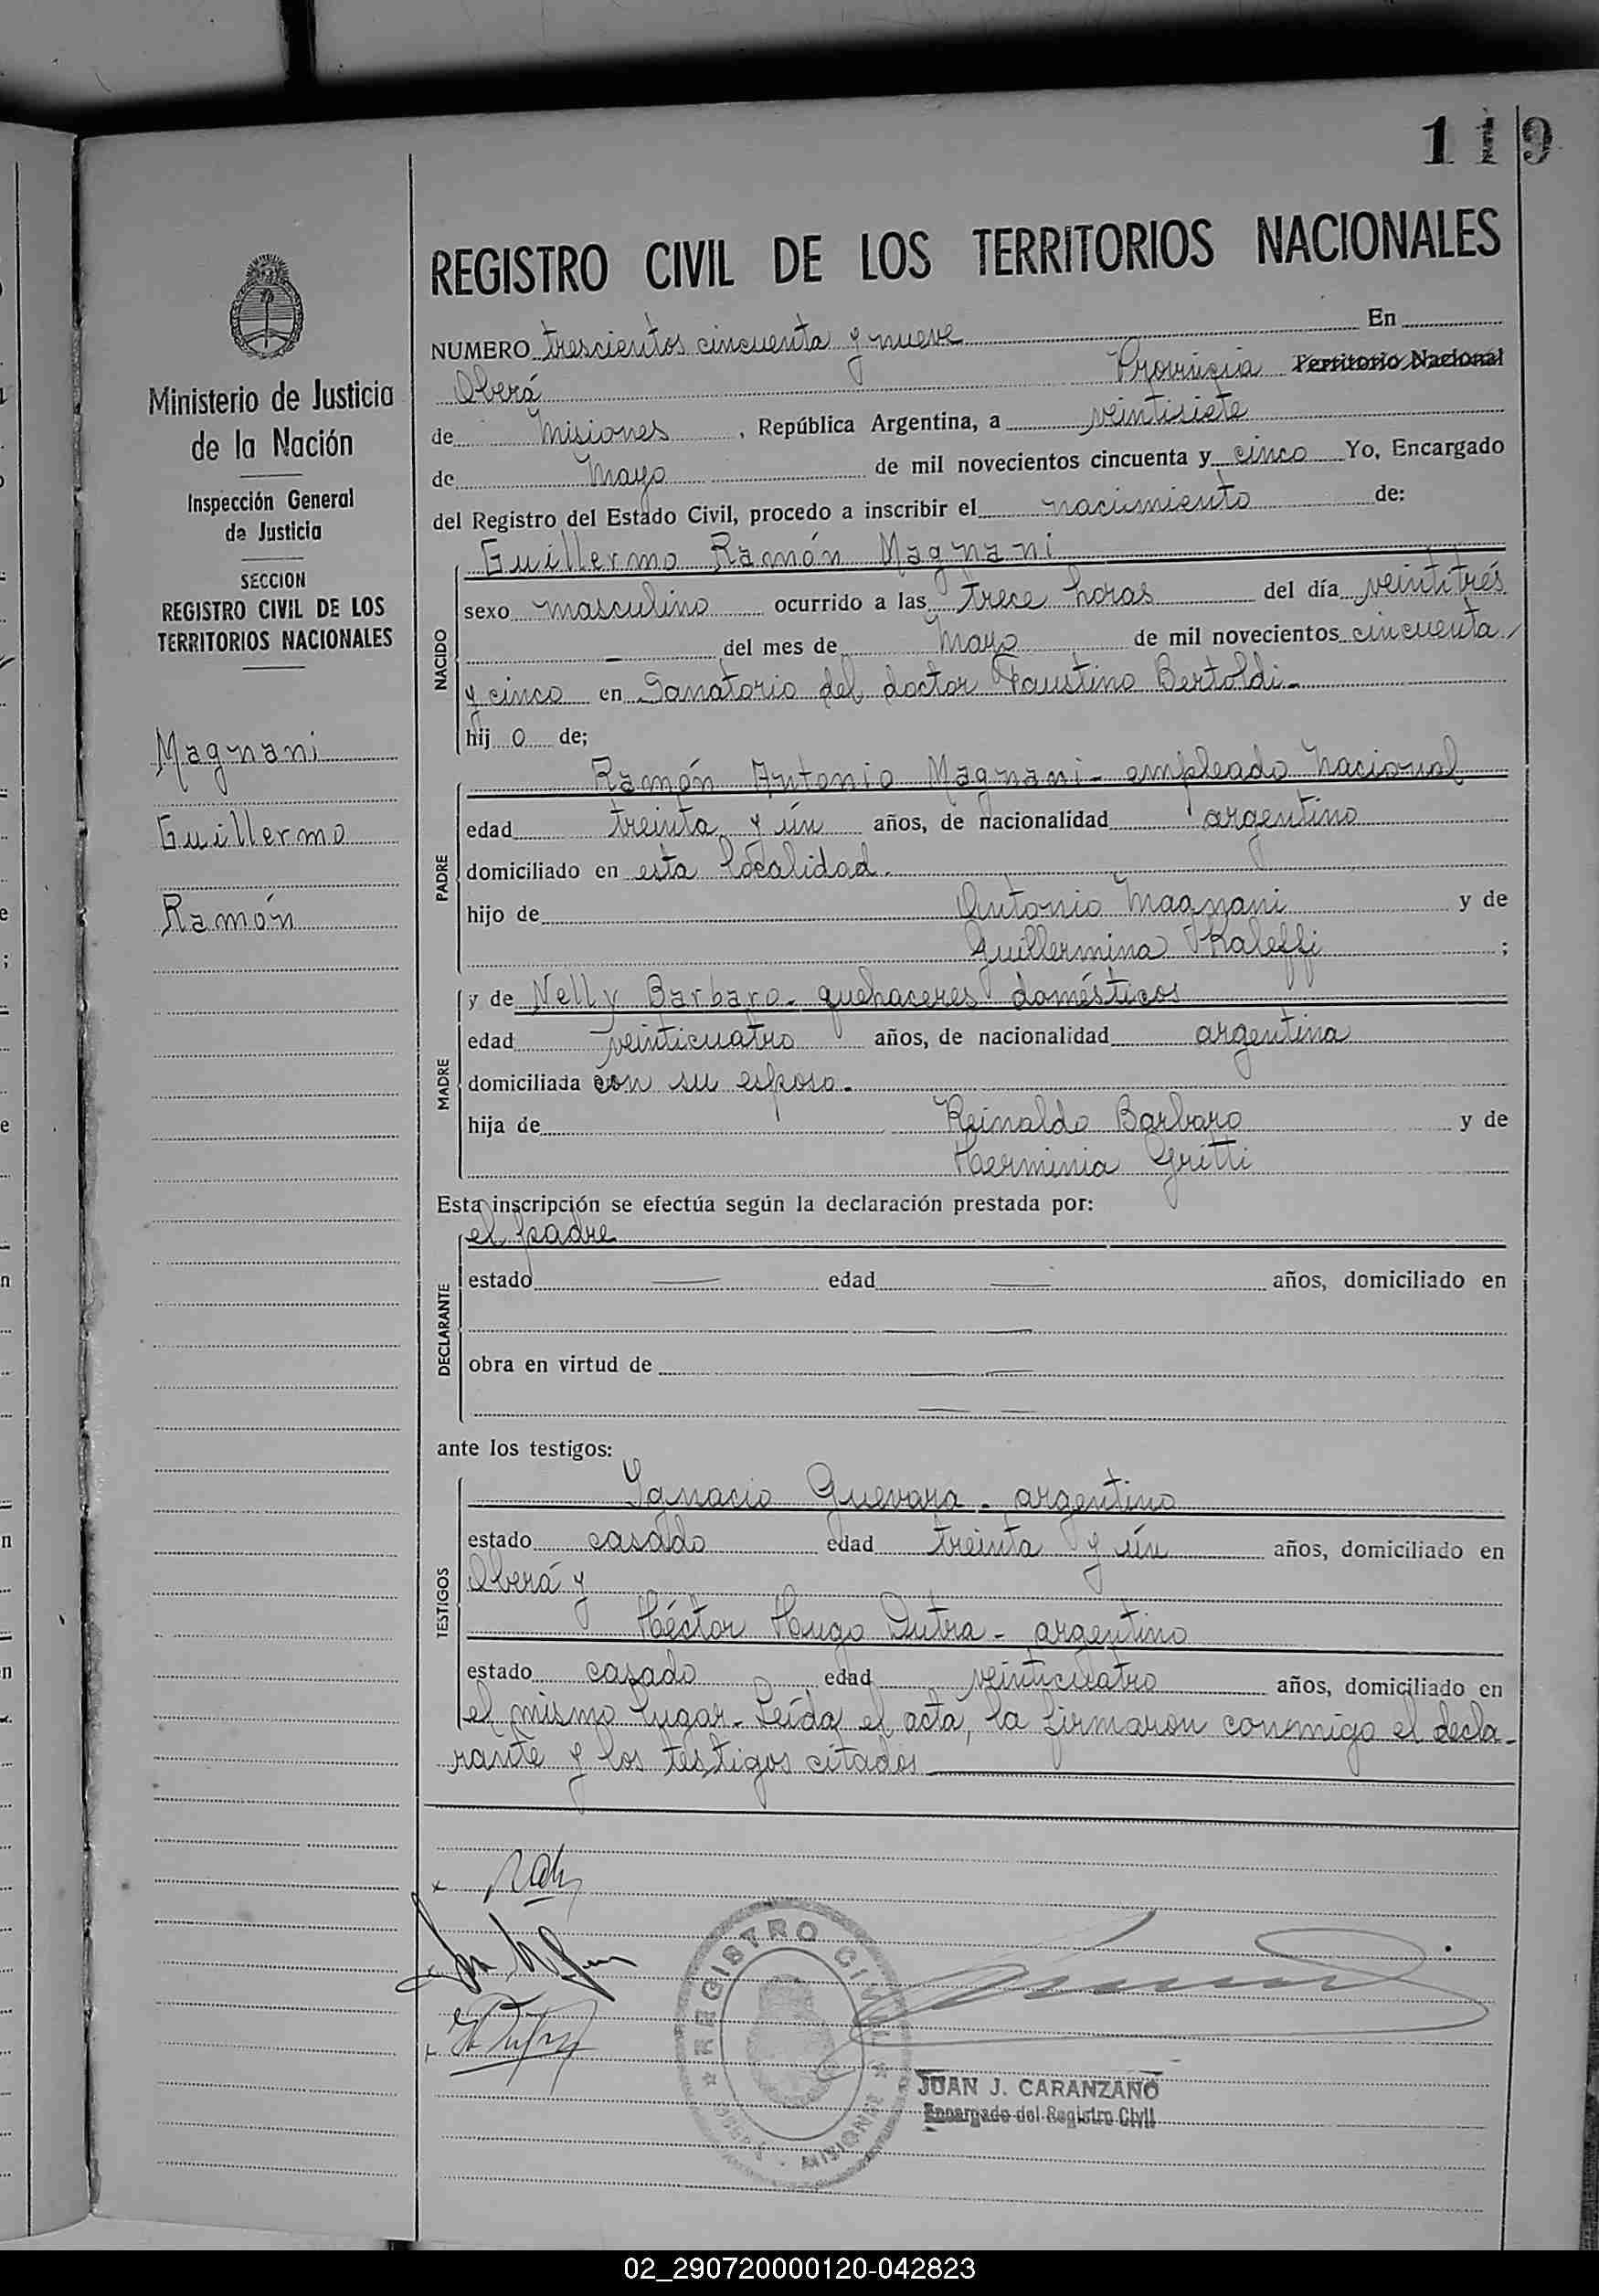 119
REGISTRO CIVIL DE LOS TERRITORIOS NACIONALES
NUMERO trescientos cincuenta y nueve En
Oberá Provincia Territorio Nacional
de Misiones, República Argentina, a veintisiete
de Mayo de mil novecientos cincuenta y cinco Yo, Encargado
del Registro del Estado Civil, procedo a inscribir el nacimiento de:
Guillermo Ramón Magnani
NACIDO
sexo masculino ocurrido a las trece horas del día veintitrés
del mes de Mayo de mil novecientos cincuenta
y cinco en Sanatorio del doctor Faustino Bertoldi-
hij o de;
PADRE
Ramón Antonio Magnani - empleado nacional
edad treinta y ún años, de nacionalidad argentino
domiciliado en esta localidad.
hijo de Antonio Magnani y de
Guillermina Raleffi ;
MADRE
y de Nelly Barbaro - quehaceres domésticos
edad veinticuatro años, de nacionalidad argentina
domiciliada con su esposo.
hija de Reinaldo Barbaro y de
Herminia Gritti
Esta inscripción se efectúa según la declaración prestada por:
DECLARANTE
el padre
estado — edad — años, domiciliado en
— —
obra en virtud de — —
— —
ante los testigos:
TESTIGOS
Ignacio Guevara - argentino
estado casado edad treinta y ún años, domiciliado en
Oberá y
Héctor Hugo Dutra - argentino
estado casado edad veinticuatro años, domiciliado en
el mismo lugar - Leída el acta, la firmaron conmigo el decla-
rante y los testigos citados
REGISTRO CIVIL
MISIONES
JUAN J. CARANZANO
Encargado del Registro Civil
Ministerio de Justicia
de la Nación
Inspección General
de Justicia
SECCION
REGISTRO CIVIL DE LOS
TERRITORIOS NACIONALES
Magnani
Guillermo
Ramón
02_290720000120-042823